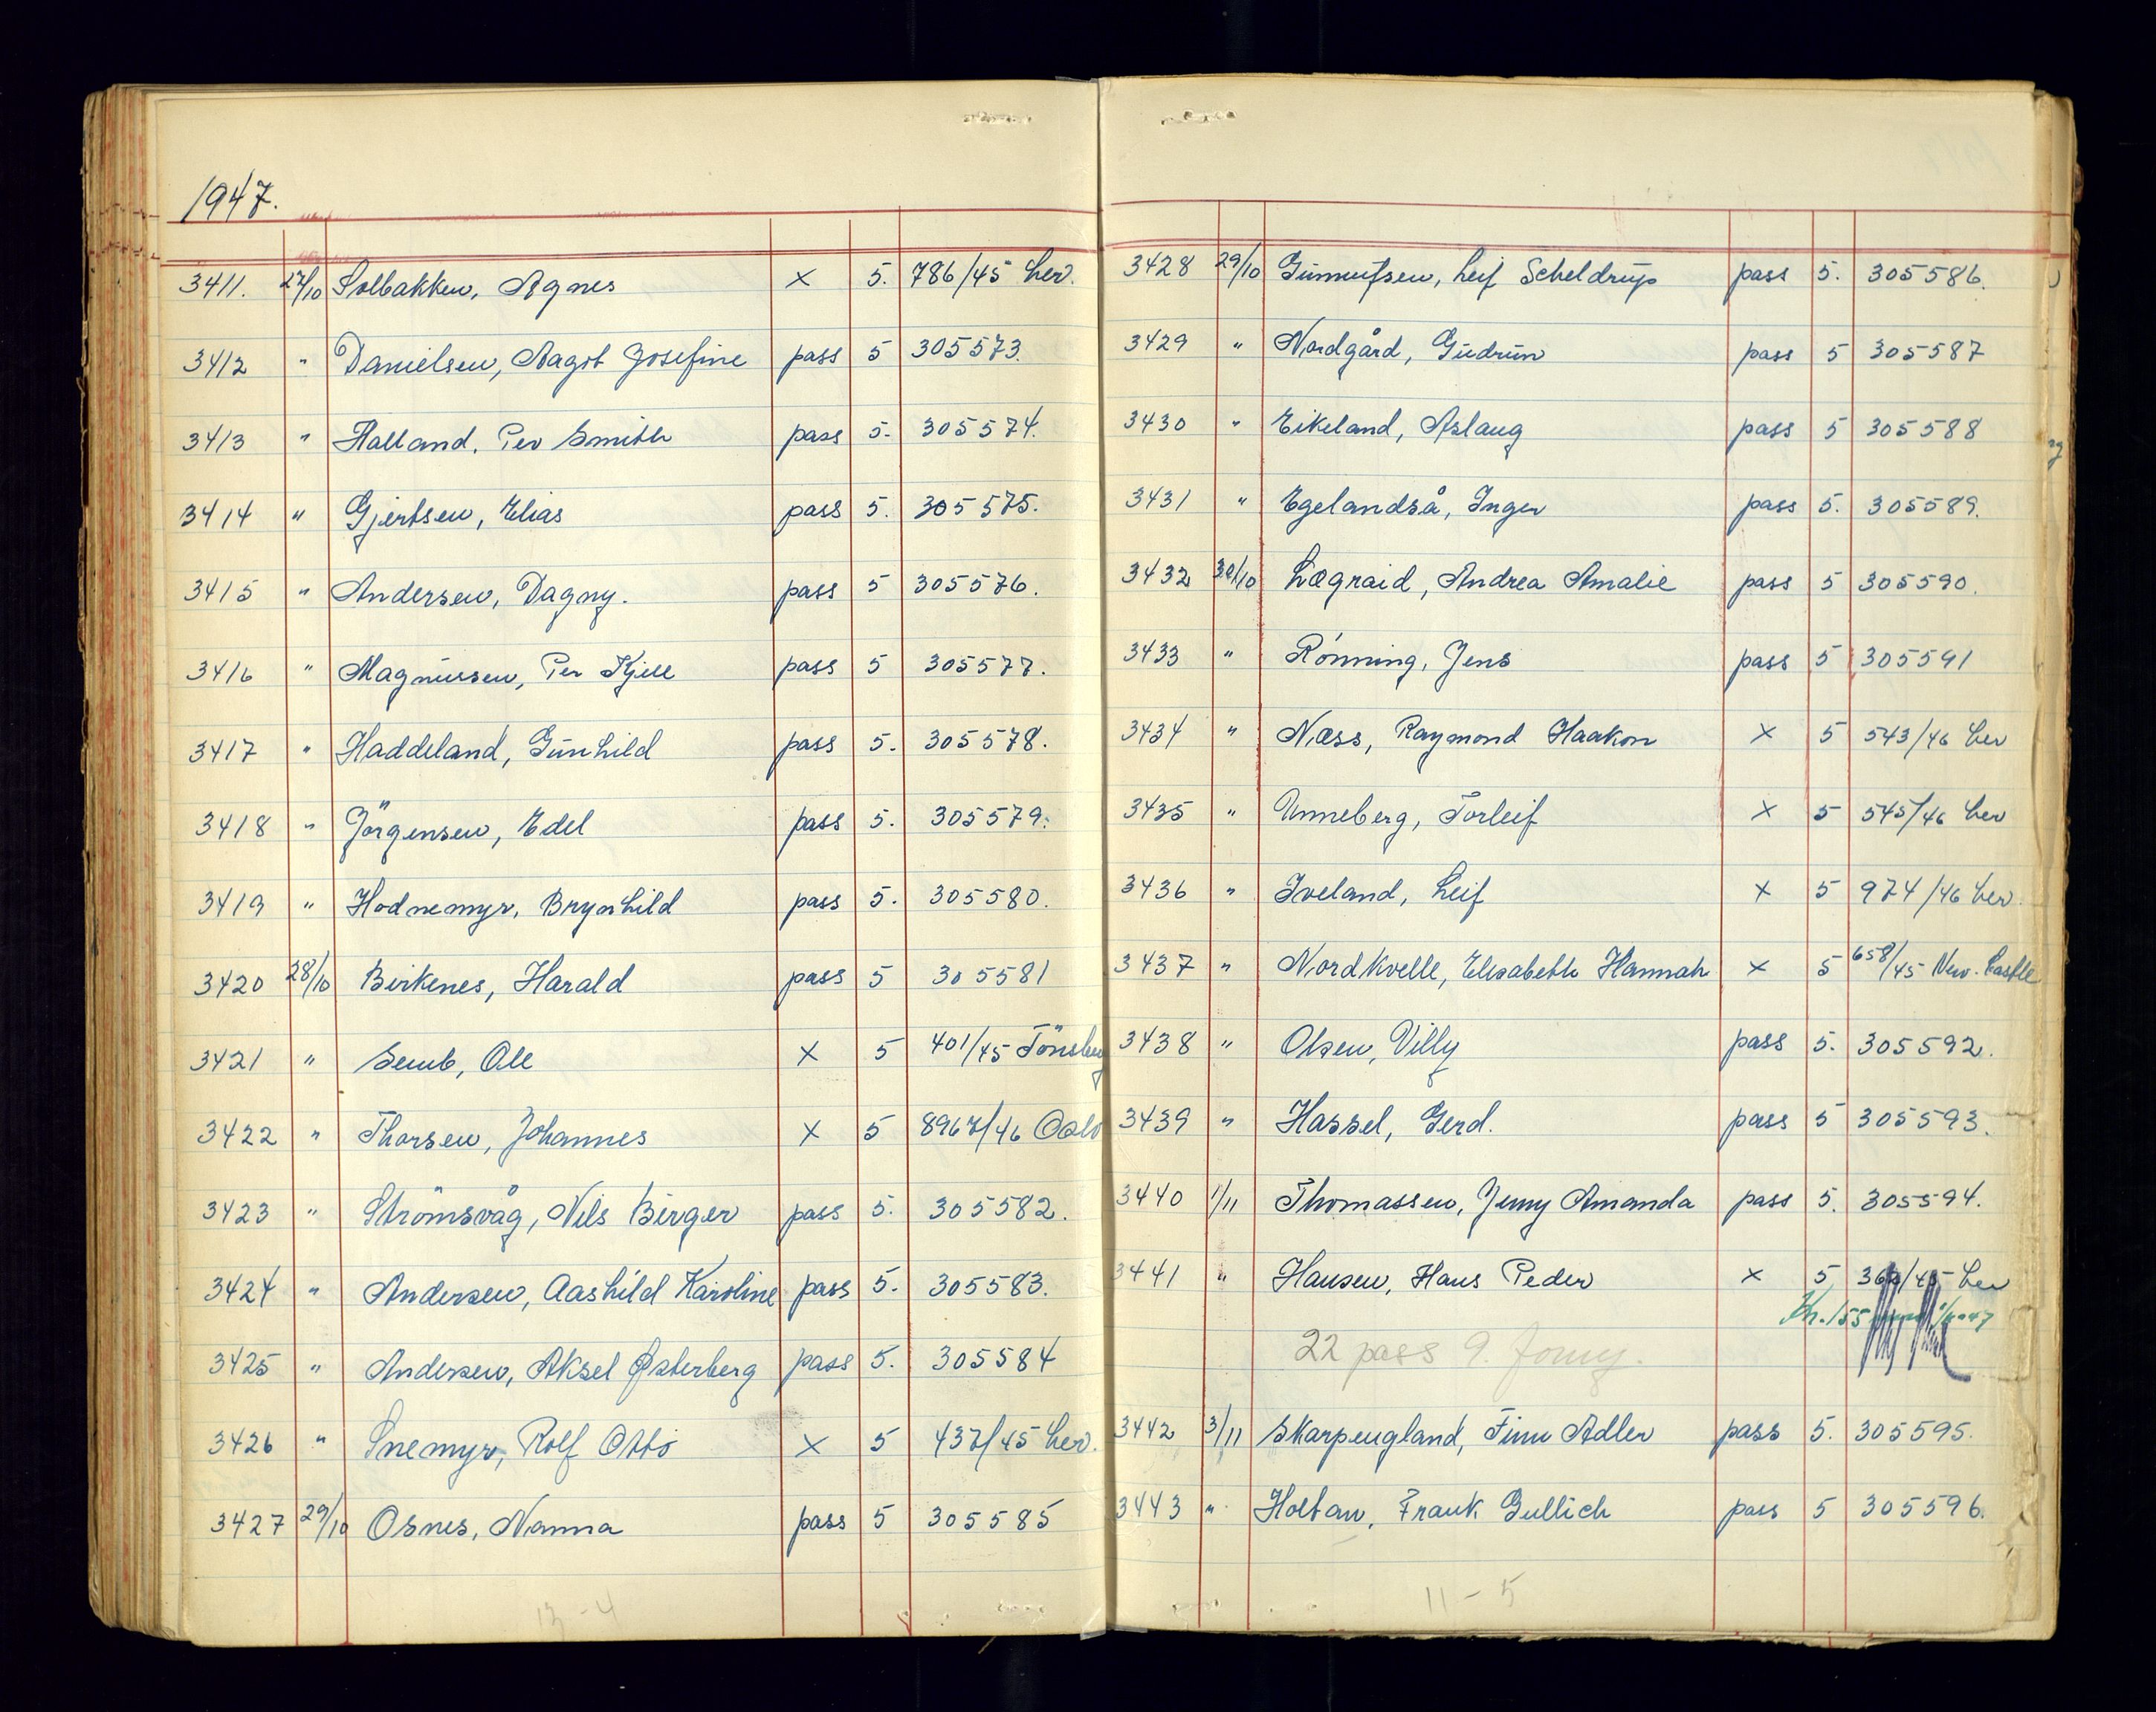 1947.
3411. 27/10 Solbakken, Agnes x 5. 786/45 her.
3412 " Danielsen, Aagot Josefine pass 5 305573.
3413 " Halland, Per Smith pass 5. 305574.
3414 " Gjertsen, Elias pass 5. 305575.
3415 " Andersen, Dagny. pass 5 305576.
3416 " Magnussen, Per Kjell pass 5 305577.
3417 " Haddeland, Gunhild pass 5. 305578.
3418 " Jörgensen, Edel pass 5. 305579.
3419 " Hodnemyr, Brynhild pass 5. 305580.
3420 28/10 Birkenes, Harald pass 5 305581
3421 " Semb, Ole x 5 401/45 Tönsberg
3422 " Thorsen, Johannes x 5 8967/46 Oslo
3423 " Strömsvåg, Nils Birger pass 5. 305582.
3424 " Andersen, Aashild Karoline pass 5. 305583.
3425 " Andersen, Aksel Østerberg pass 5. 305584
3426 " Snemyr, Rolf Otto x 5 437/45 her.
3427 29/10 Osnes, Nanna pass 5 305585
13-4
3428 29/10 Gunnufsen, Leif Scheldrup pass 5. 305586.
3429 " Nordgård, Gudrun pass 5 305587
3430 " Eikeland, Aslaug pass 5 305588
3431 " Egelandså, Inger pass 5. 305589.
3432 30/10 Lægraid, Andrea Amalie pass 5 305590.
3433 " Rónning, Jens pass 5 305591
3434 " Næss, Raymond Haakon x 5 543/46 her
3435 " Unneberg, Torleif x 5 545/46 her
3436 " Iveland, Leif x 5 974/46 her.
3437 " Nordkvelle, Elisabeth Hannah x 5 658/45 New. Castle
3438 " Olsen, Villy pass 5. 305592.
3439 " Hassel, Gerd. pass 5 305593.
3440 1/11 Thomassen, Jenny Amanda pass 5. 305594.
3441 " Hansen, Hans Peder x 5 her
Kr. 155
22 pass 9. forny.
3442 3/11 Skarpengland, Finn Adler pass 5. 305595.
3443 " Holtan, Frank Gullich pass 5 305596.
11-5